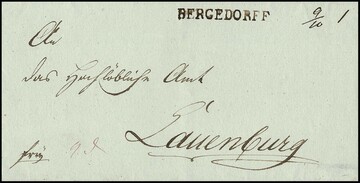 BERGEDORFF
9/10 1
An
das Hochlöbliche Amt
Lauenburg
frei